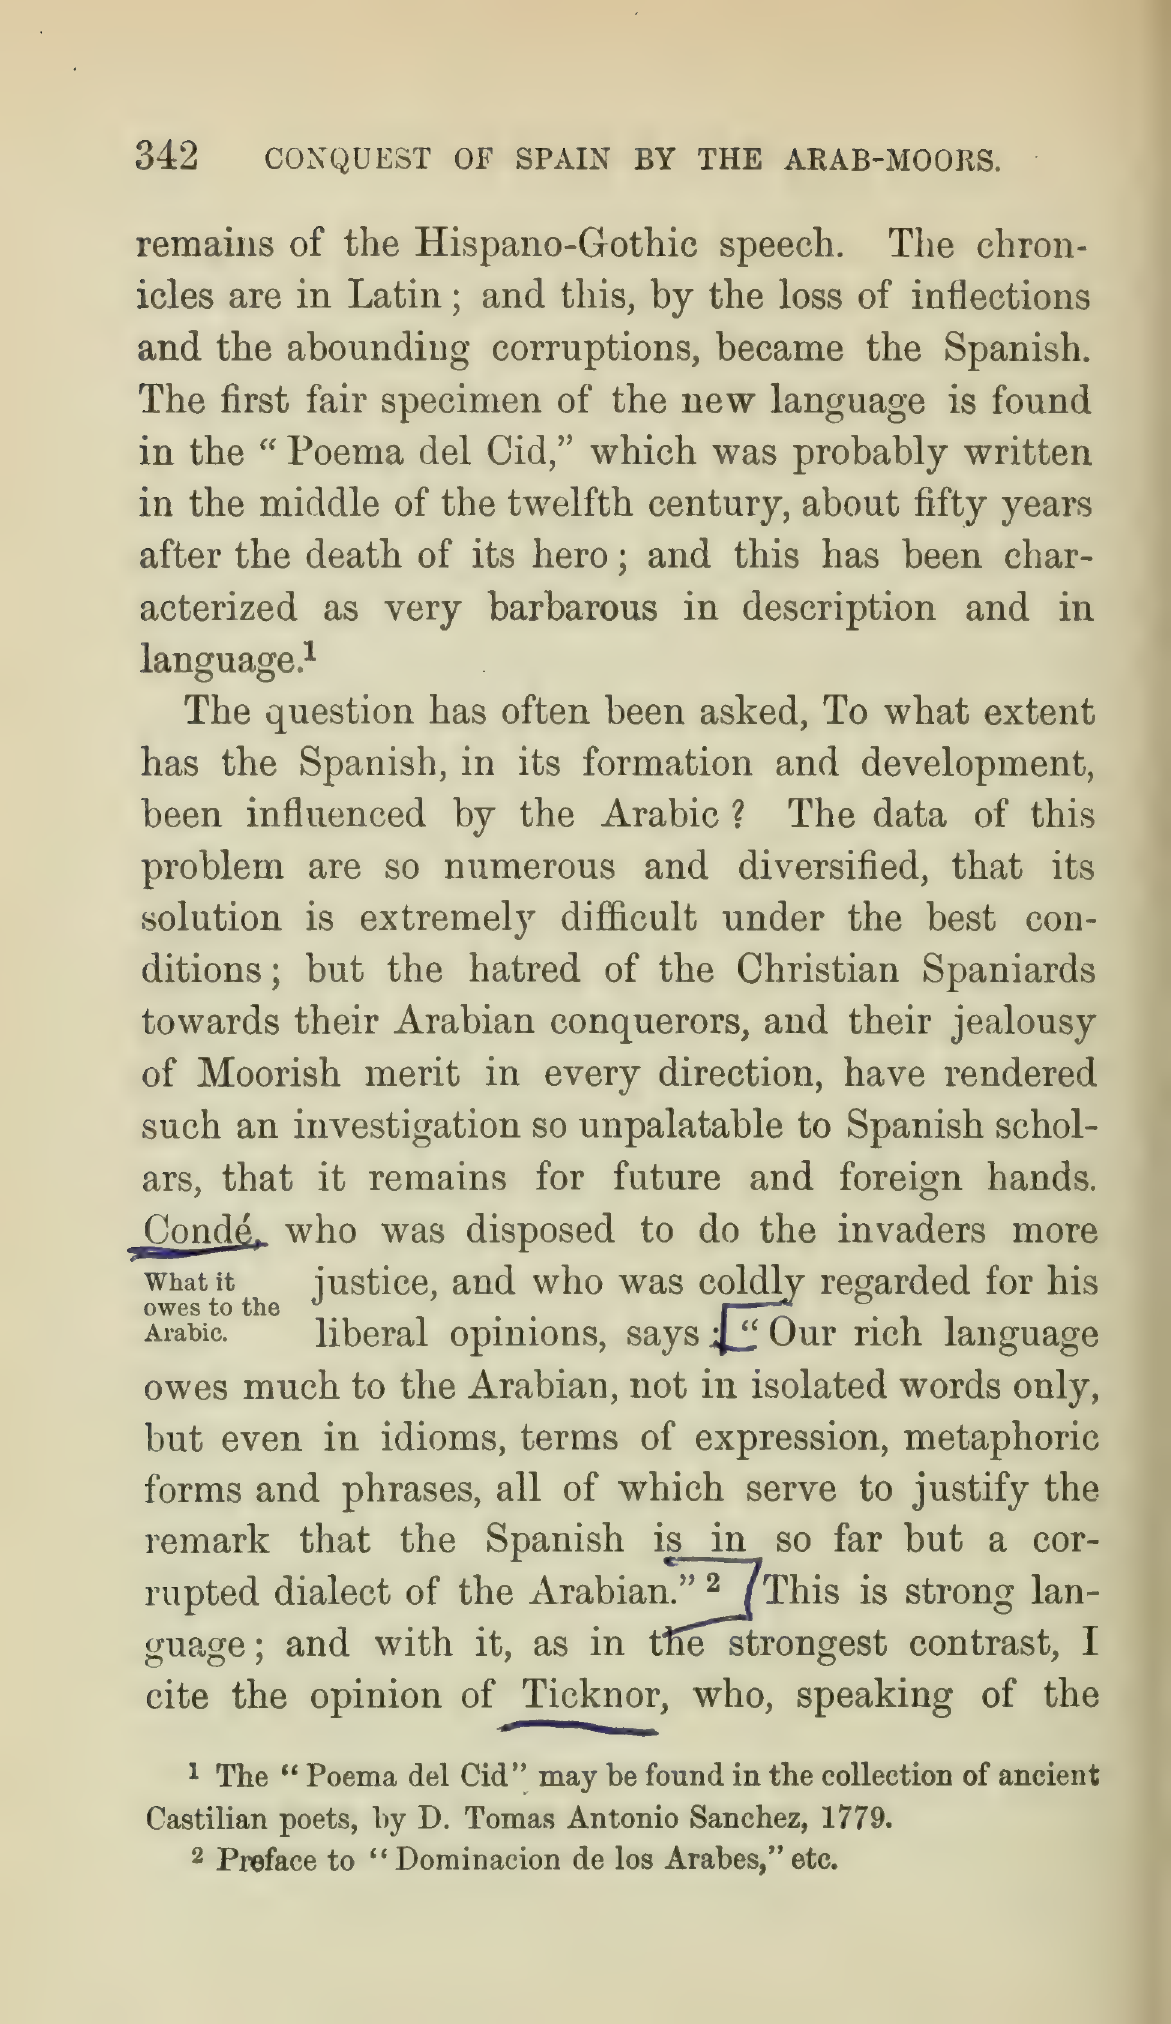 342 CONQUEST OF SPAIN BY THE ARAB-MOORS.
remains of the Hispano-Gothic speech. The chron-
icles are in Latin; and this, by the loss of inflections
and the abounding corruptions, became the Spanish.
The first fair specimen of the new language is found
in the “Poema del Cid,” which was probably written
in the middle of the twelfth century, about fifty years
after the death of its hero; and this has been char-
acterized as very barbarous in description and in
language.¹
The question has often been asked, To what extent
has the Spanish, in its formation and development,
been influenced by the Arabic? The data of this
problem are so numerous and diversified, that its
solution is extremely difficult under the best con-
ditions; but the hatred of the Christian Spaniards
towards their Arabian conquerors, and their jealousy
of Moorish merit in every direction, have rendered
such an investigation so unpalatable to Spanish schol-
ars, that it remains for future and foreign hands.
Condé, who was disposed to do the invaders more
What it
owes to the
Arabic.
justice, and who was coldly regarded for his
liberal opinions, says: “Our rich language
owes much to the Arabian, not in isolated words only,
but even in idioms, terms of expression, metaphoric
forms and phrases, all of which serve to justify the
remark that the Spanish is in so far but a cor-
rupted dialect of the Arabian.”² This is strong lan-
guage; and with it, as in the strongest contrast, I
cite the opinion of Ticknor, who, speaking of the
¹ The “Poema del Cid” may be found in the collection of ancient
Castilian poets, by D. Tomas Antonio Sanchez, 1779.
² Preface to “Dominacion de los Arabes,” etc.